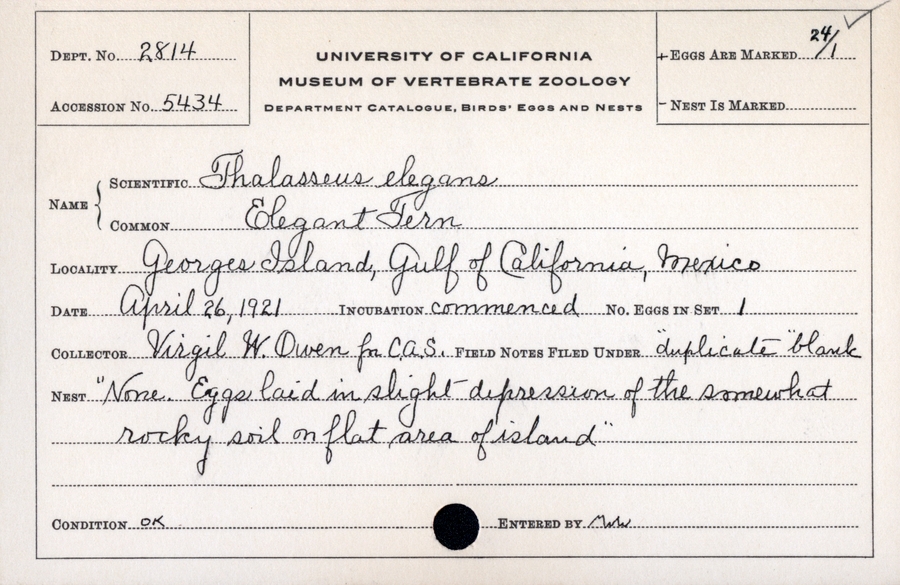 Dept. No. 2814
Accession No. 5434
UNIVERSITY OF CALIFORNIA
MUSEUM OF VERTEBRATE ZOOLOGY
Department Catalogue, Birds' Eggs and Nests
+ Eggs Are Marked 24/1
- Nest Is Marked
Name { Scientific Thalasseus elegans
Common Elegant Tern
Locality Georges Island, Gulf of California, Mexico
Date April 26, 1921 Incubation commenced No. Eggs in Set 1
Collector Virgil W. Owen for C.A.S. Field Notes Filed Under "duplicate" blank
Nest "None. Eggs laid in slight depression of the somewhat
rocky soil on flat area of island"
Condition OK Entered by